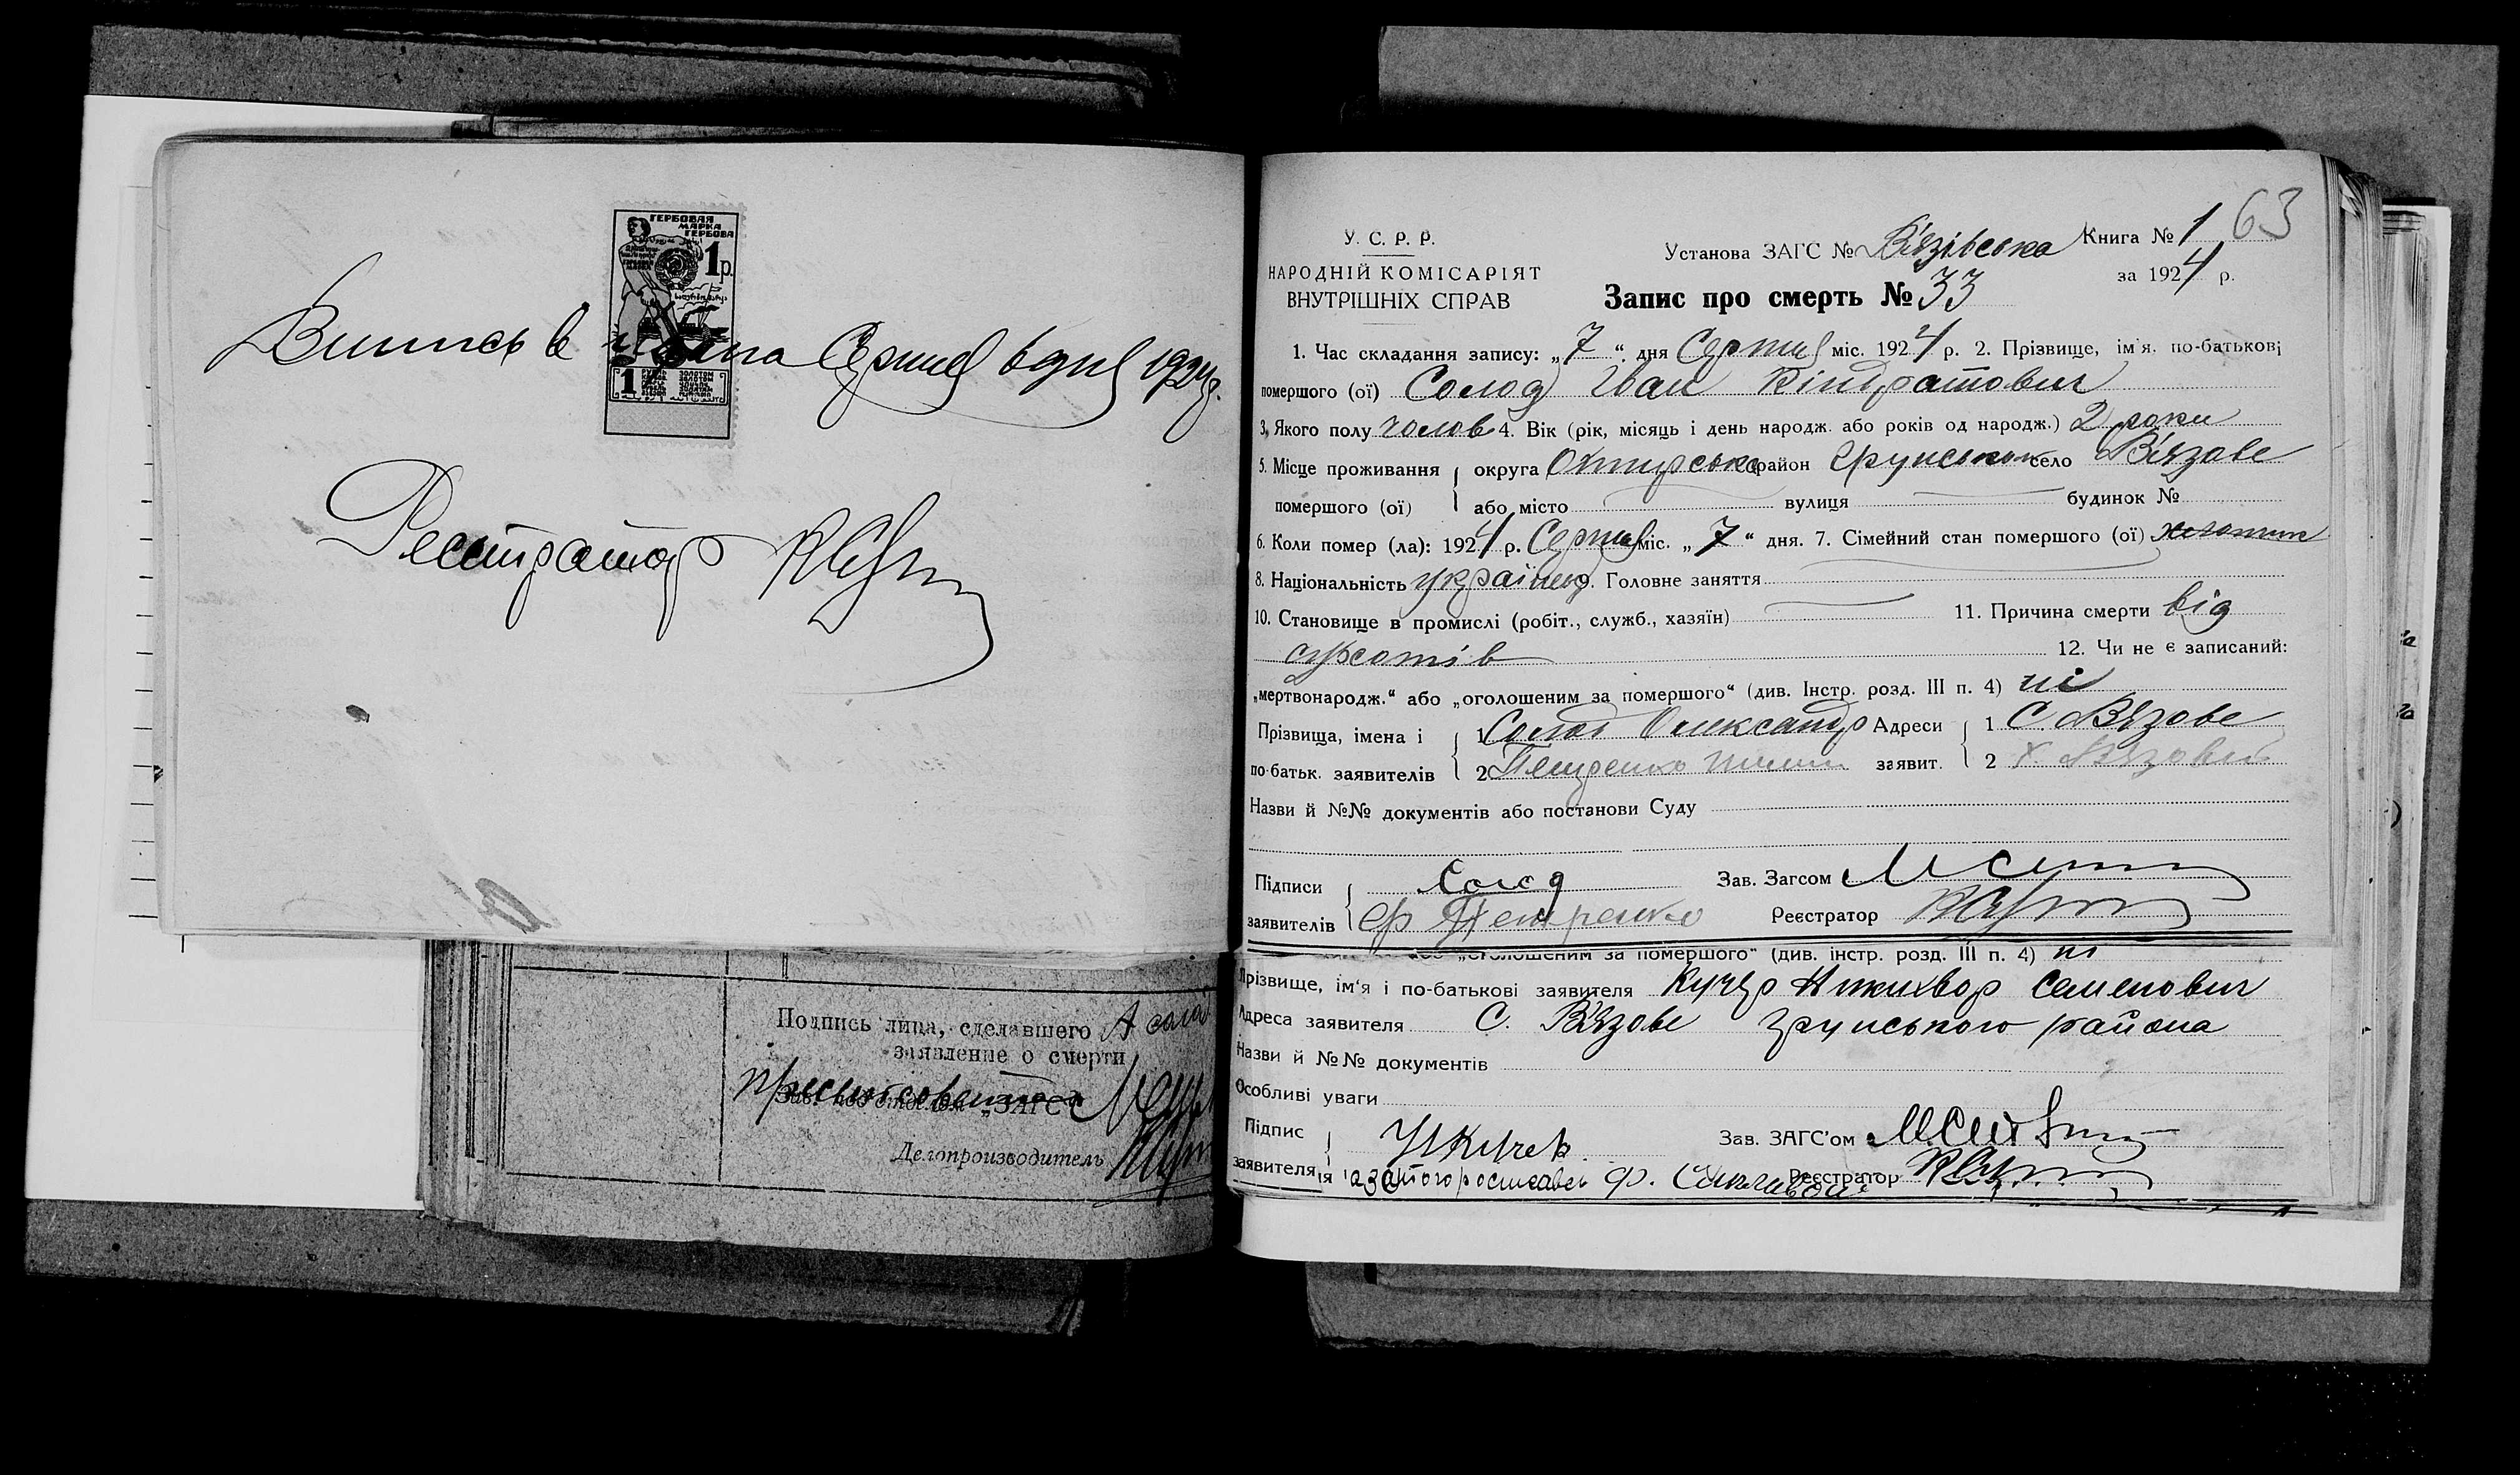 ГЕРБОВАЯ
МАРКА
ГЕРБОВА
1 р.
1
Випись в Серпня 6 дня 1924 р.
Реєстратор
63
У. С. Р. Р.
НАРОДНІЙ КОМІСАРІЯТ
ВНУТРІШНІХ СПРАВ
Установа ЗАГС № Вязівська Книга № 1
за 1924 р.
Запис про смерть № 33
1. Час складання запису: „7“ дня Серпня міс. 1924 р. 2. Прізвище, ім'я, по-батькові
помершого (ої) Солод Іван Кіндратович
3. Якого полу чолов 4. Вік (рік, місяць і день народж. або років од народж.) 2 роки
5. Місце проживання округа Охтирська район Грунський село Вязове
помершого (ої) або місто вулиця будинок №
6. Коли помер (ла): 1924 р. Серпня міс. „7“ дня. 7. Сімейний стан помершого (ої)
8. Національність українец 9. Головне заняття
10. Становище в промислі (робіт., служб., хазяїн) 11. Причина смерти від
сухотів 12. Чи не є записаний:
„мертвонародж.“ або „оголошеним за помершого“ (див. Інстр. розд. III п. 4) ні
Прізвища, імена і 1 Солод Олександр Адреси 1. С. Вязове
по-батьк. заявителів 2 заявит. 2 х. Вязовий
Назви й №№ документів або постанови Суду
Підписи Солод Зав. Загсом
заявителів Реєстратор
„оголошеним за помершого“ (див. інстр. розд. III п. 4) ні
Прізвище, ім'я і по-батькові заявителя Кучер Никихвор Семенович
Адреса заявителя С. Вязове Грунського района
Назви й №№ документів
Особливі уваги
Підпис Зав. ЗАГС'ом
заявителя Реєстратор
Подпись лица, сделавшего
заявление о смерти
Зав. „ЗАГС“
Делопроизводитель